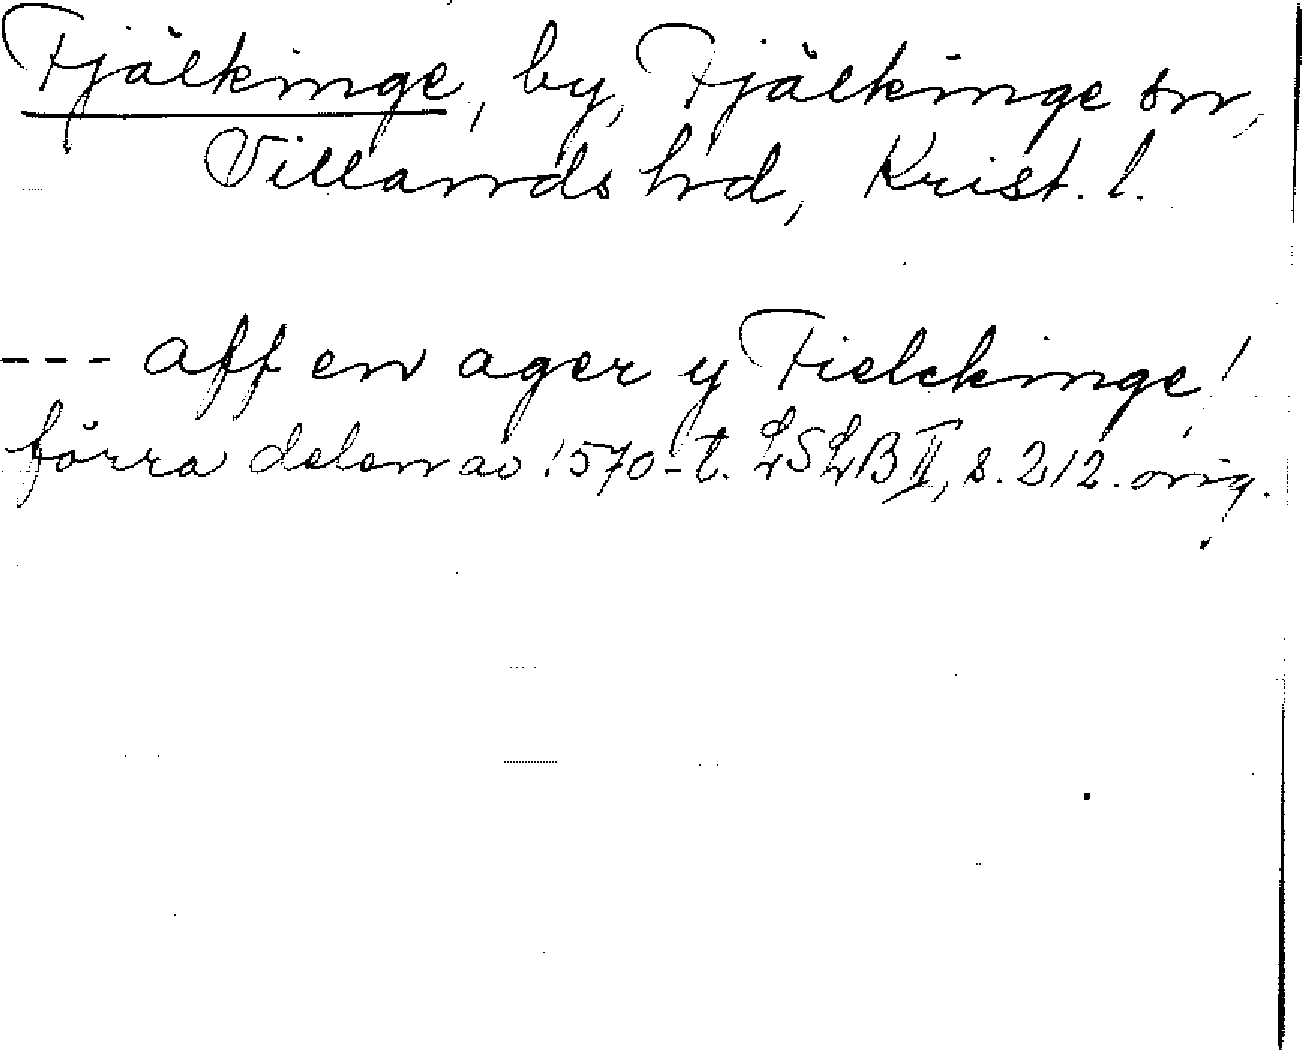 Fjälkinge, by, Fjälkinge sn,
Villands hd, Krist. l.
--- aff en ager y Fielckinge!
förra delen av 1570-t. LSLB II, s. 212. orig.